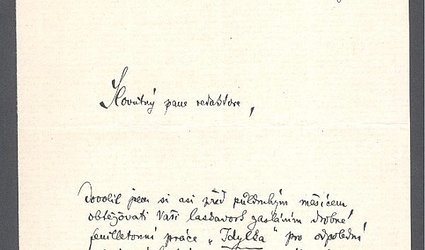 Slovutný pane redaktore,
Dovolil jsem si asi před půldruhým měsícem
obtěžovati Vaši laskavost zasláním drobné
feuilletonní práce „Idylka" pro odpolední